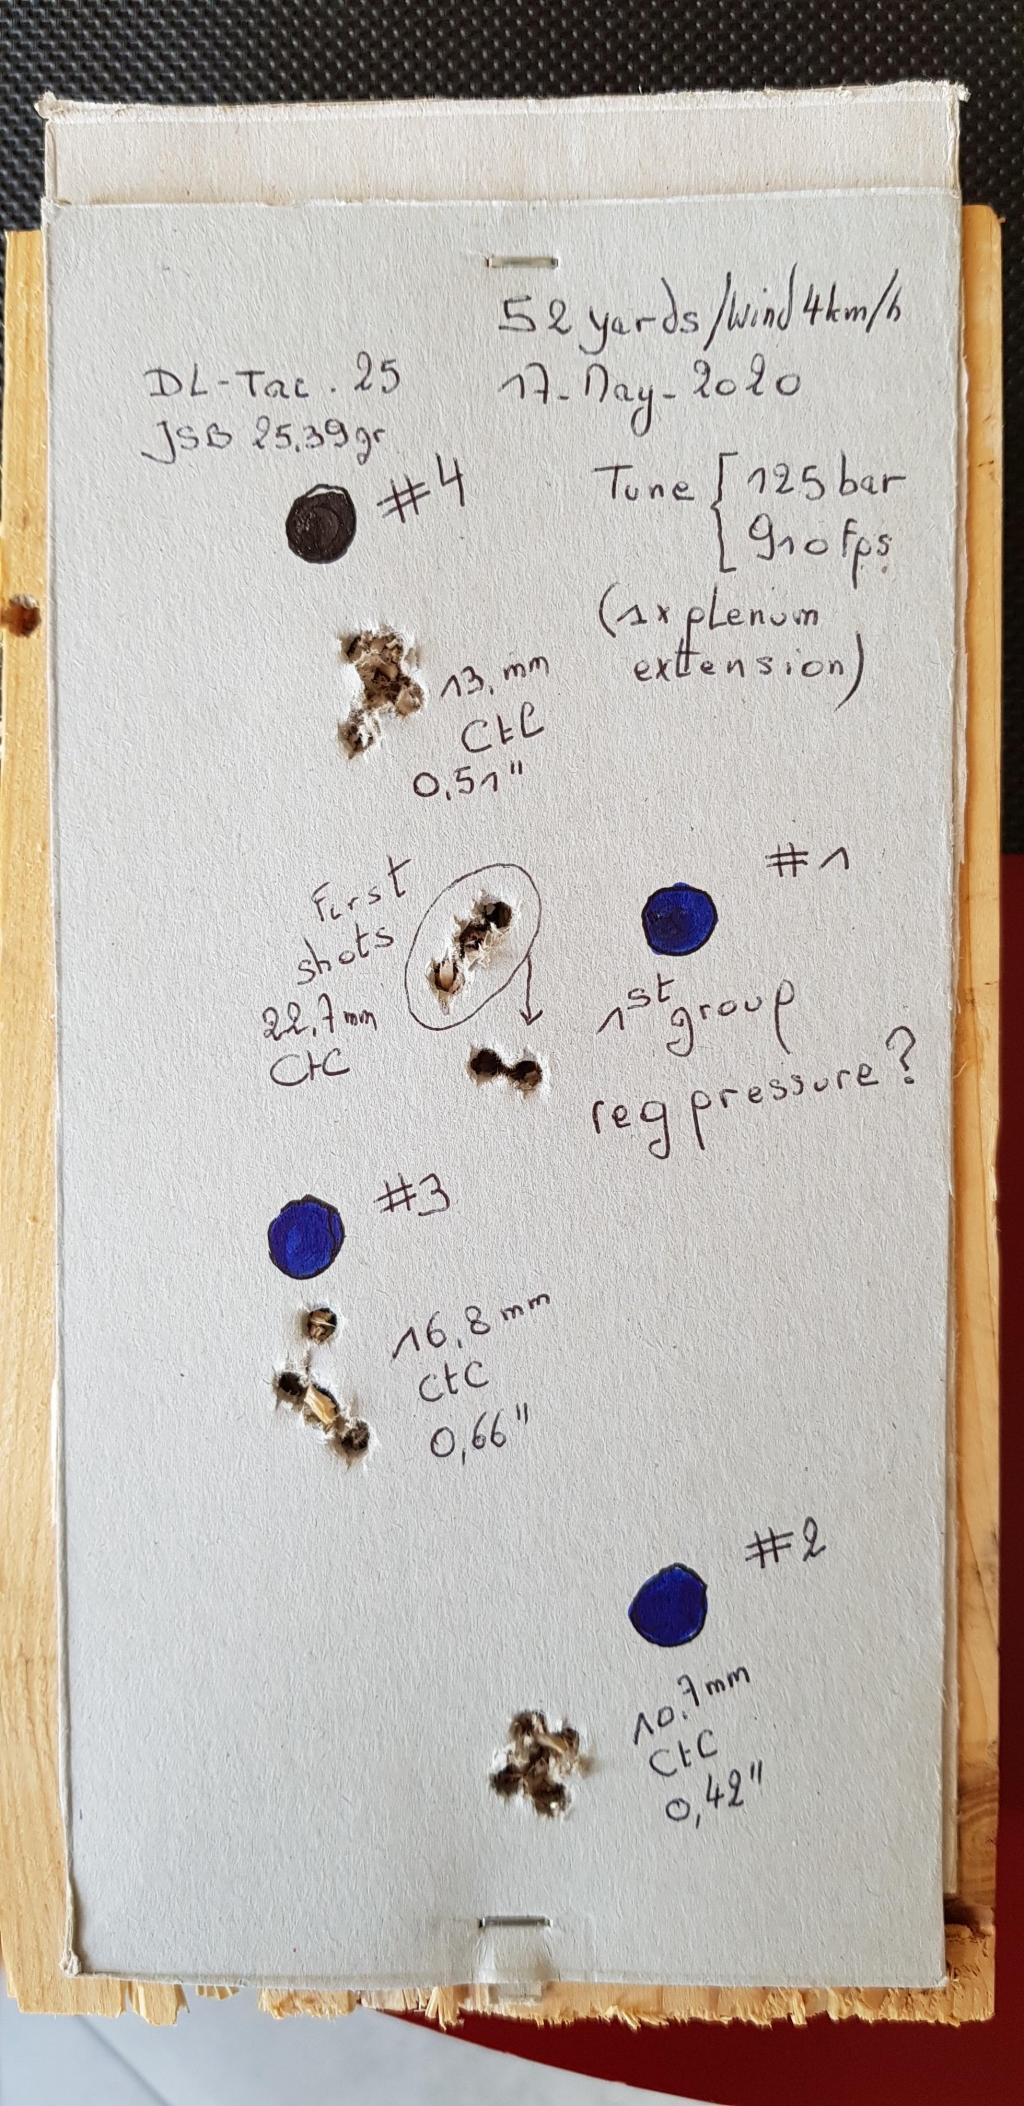 52 yards/Wind 4km/h
DL-Tac .25
17-May-2020
JSB 25.39gr
#4
Tune [ 125 bar
910 Fps
(1x plenum
extension)
13, mm
CtC
0,51"
#1
First
shots
22,7mm
CtC
1st group
reg pressure?
#3
16,8mm
CtC
0,66"
#2
10.7mm
CtC
0,42"